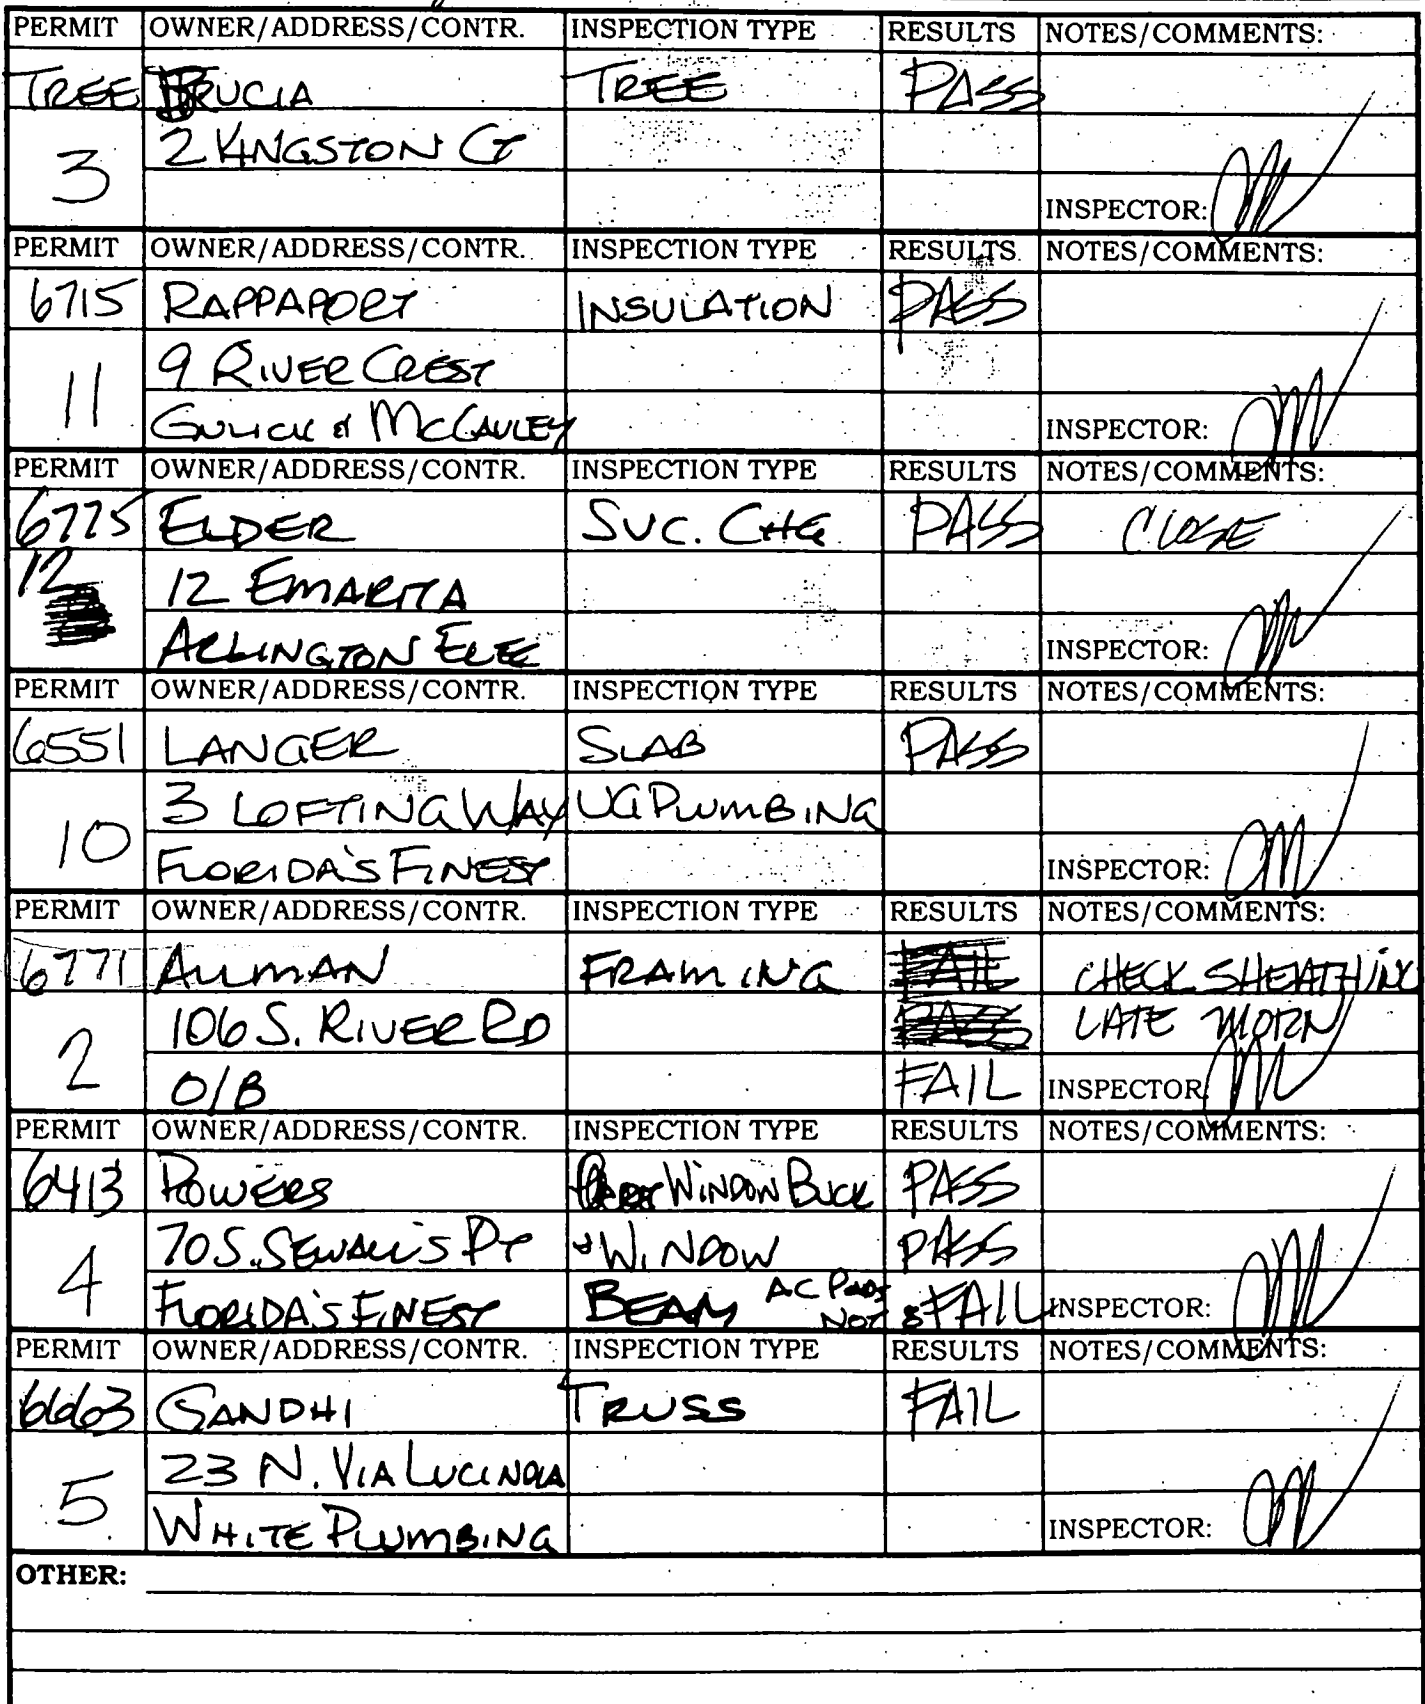 PERMIT OWNER/ADDRESS/CONTR. INSPECTION TYPE RESULTS NOTES/COMMENTS:
TREE BRUCIA TREE PASS
3 2 KINGSTON CT
INSPECTOR:
PERMIT OWNER/ADDRESS/CONTR. INSPECTION TYPE RESULTS NOTES/COMMENTS:
6715 RAPPAPORT INSULATION PASS
11 9 RIVER CREST
GULICK & MCCAULEY INSPECTOR:
PERMIT OWNER/ADDRESS/CONTR. INSPECTION TYPE RESULTS NOTES/COMMENTS:
6775 ELDER SVC. CHG PASS CLOSE
12 12 EMARITA
ARLINGTON ELEC INSPECTOR:
PERMIT OWNER/ADDRESS/CONTR. INSPECTION TYPE RESULTS NOTES/COMMENTS:
6551 LANGER SLAB PASS
10 3 LOFTING WAY UG PLUMBING
FLORIDA'S FINEST INSPECTOR:
PERMIT OWNER/ADDRESS/CONTR. INSPECTION TYPE RESULTS NOTES/COMMENTS:
6771 ALLMAN FRAMING FAIL CHECK SHEATHING
2 106 S. RIVER RD PASS LATE MORN
O/B FAIL INSPECTOR:
PERMIT OWNER/ADDRESS/CONTR. INSPECTION TYPE RESULTS NOTES/COMMENTS:
6413 POWERS WINDOW BUCK PASS
4 70 S. SEWALL'S PT + WINDOW PASS
FLORIDA'S FINEST BEAM AC PADS NOT FAIL INSPECTOR:
PERMIT OWNER/ADDRESS/CONTR. INSPECTION TYPE RESULTS NOTES/COMMENTS:
6663 GANDHI TRUSS FAIL
5 23 N. VIA LUCINDIA
WHITE PLUMBING INSPECTOR:
OTHER: